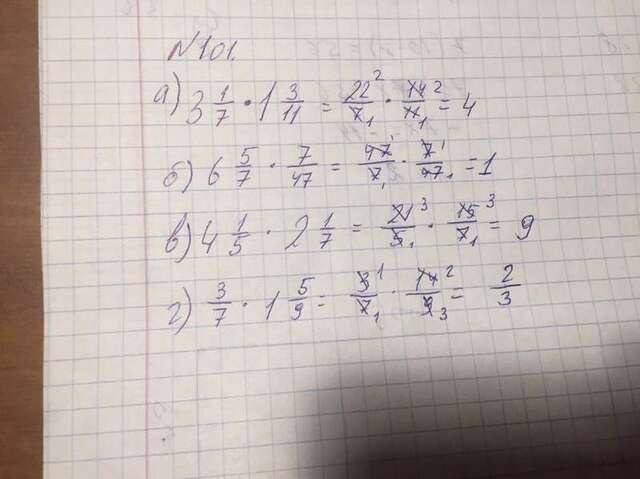 N 101.
а) 3 1/7 · 1 3/11 = 22²/7₁ · 14²/11₁ = 4
б) 6 5/7 · 7/47 = 47¹/7₁ · 7¹/47₁ = 1
в) 4 1/5 · 2 1/7 = 21³/5₁ · 15³/7₁ = 9
г) 3/7 · 1 5/9 = 3¹/7₁ · 14²/9₃ = 2/3